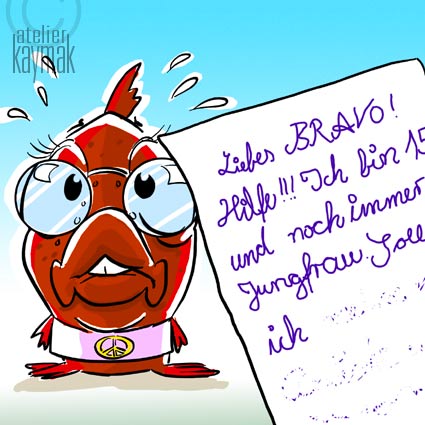 atelier
kaymak
Liebes BRAVO!
Hilfe!!! Ich bin 15
und noch immer
Jungfrau Soll
ich